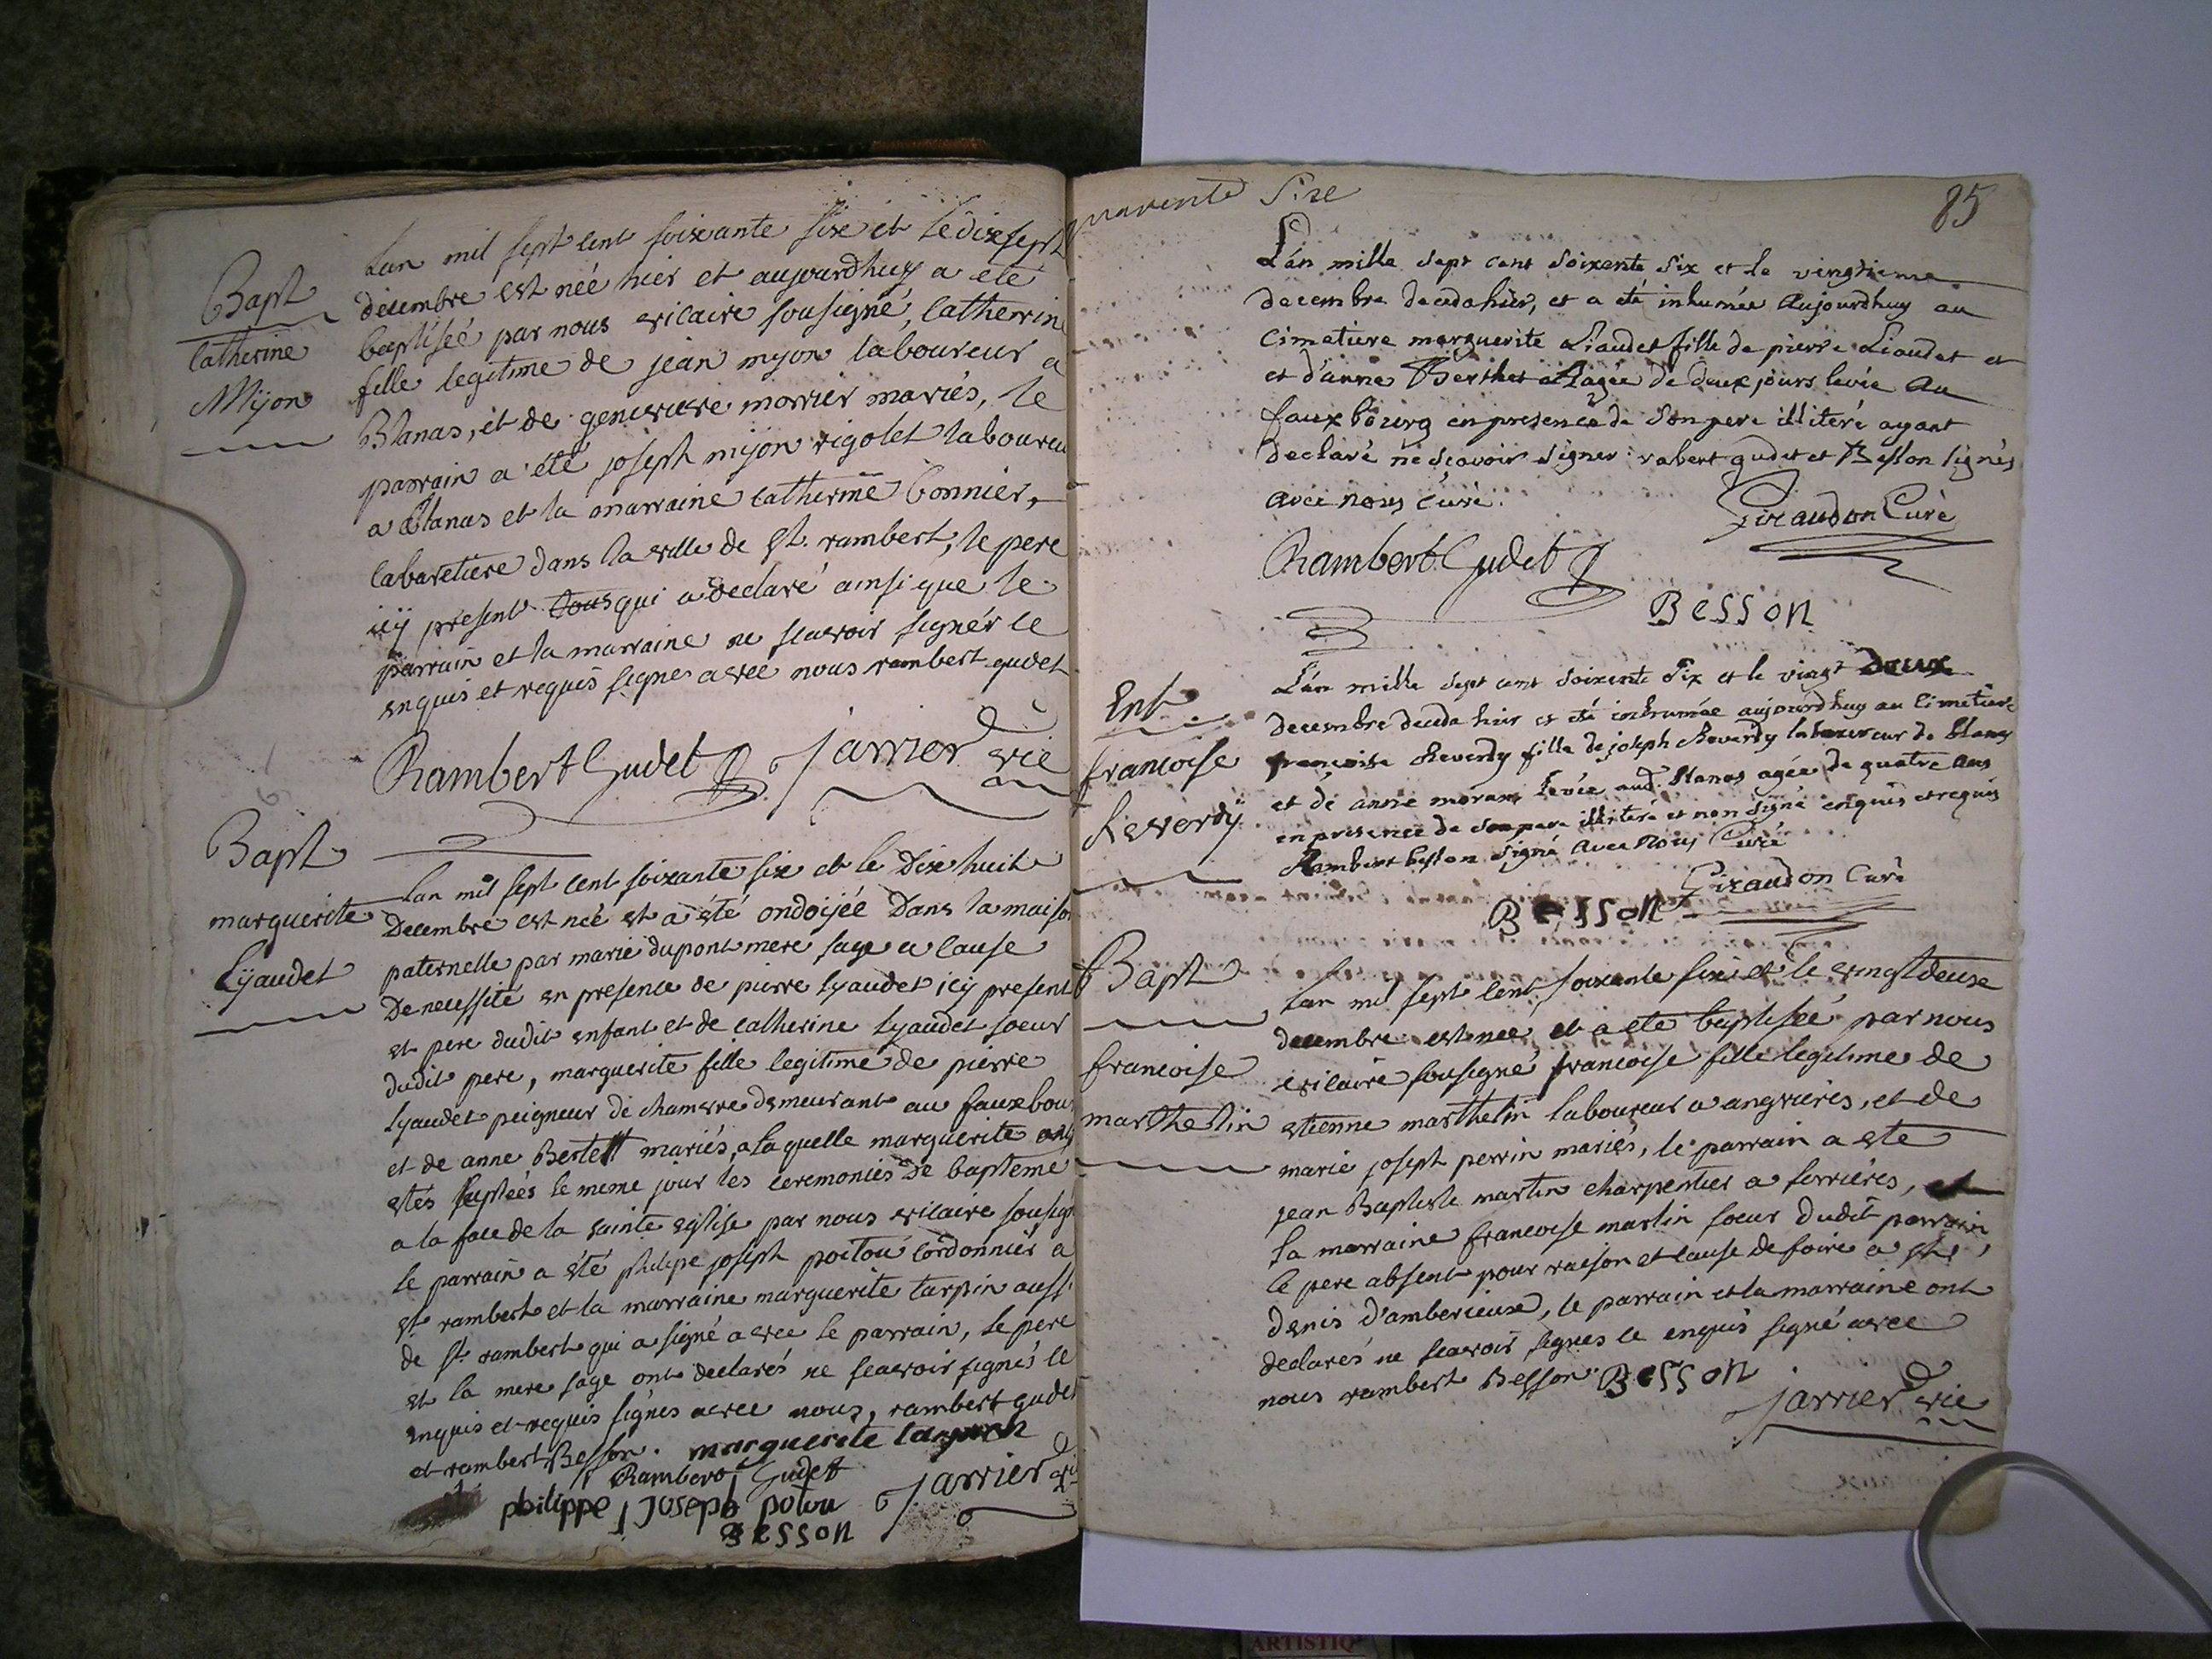 Bapt
Catherine
Mijon
Lan mil sept cent soixante six et le dix sept
décembre est née hier et aujourdhuy a été
baptiseé par nous vicaire sousigné, Catherine
fille legitime de jean mijon laboureur a
Blanas, et de genevieve morrier mariés, le
parrain a été joseph mijon rigolet laboureu
a Blanas et la marraine catherine bonnier,
cabaretiere dans la ville de st. rambert, le pere
icy present tous qui a declaré ainsi que le
parrain et la marraine ne scavoir signér le
enquis et requis signe avec nous rambert gudet
Rambert Gudet Jarrier vic
Bapt
marguerite
Lyaudet
Lan mil sept cent soixante six et le Dix huit
Decembre est née et a été ondoyée Dans la maison
paternelle par marie dupont mere sage a cause
De necessité en presence de pierre lyaudet icy present
et pere dudit enfant et de catherine lyaudet soeur
dudit pere, marguerite fille legitime de pierre
Lyaudet peigneur de chamvre demeurant au fauxbour
et de anne Bertett mariés, a laquelle marguerite ont
étés supleés le meme jour les ceremonies de bapteme
a la face de la sainte eglise par nous vicaire sousigé
le parrain a été philipe joseph poitou cordonnier a
st rambert et la marraine marguerite tarpin aussi
de st. rambert qui a signé avec le parrain, le pere
et la mere sage ont declarés ne scavoir signés le
enquis et requis signés avec nous, rambert gudet
et rambert Besson. marguerite tarpin
Rambert Gudet
philippe joseph potou Jarrier vic
BESSON
quarente sixe
85
L'an mille sept cent soixente six et le vingtieme
decembre deceda hier, et a eté inhumée aujourdhuy au
cimetiere marguerite Liaudet fille de pierre Liaudet et
et d'anne Berthet agée de deux jours levée au
fauxbourg en presence de son pere illiteré ayant
declaré ne sçavoir signer: rabert gudet et Besson signés
avec nous curé. Giraudon Curé
Rambert Gudet
BESSON
Ent
francoise
Reverdy
L'an mille sept cent soixente six et le vingt deux
decembre deceda hier et eté inhumée aujourdhuy au cimetiere
françoise Reverdy fille de joseph Reverdy laboureur de blanas
et de anne moran levée aud. blanas agée de quatre ans
en presence de son pere illiteré et non signé enquis et requis
Rambert besson signé avec nous Curé
Giraudon Curé
BESSON
Bapt
francoise
marthelin
Lan mil sept cent soixante six et le vingt deuxe
decembre est née et a eté baptiseé par nous
vicaire sousigné francoise fille legitime de
etienne marthelin laboureur a angrieres, et de
marie joseph perrin mariés, le parrain a eté
jean Baptiste martin charpentier a ferrieres, et
la marraine francoise martin soeur dudit parrain,
le pere absent pour raison et cause de foire a st.
denis d'amberieux, le parrain et la marraine ont
declarés ne scavoir signés le enquis signé avec
nous rambert Besson. BESSON
Jarrier vic
ARTISTIQ